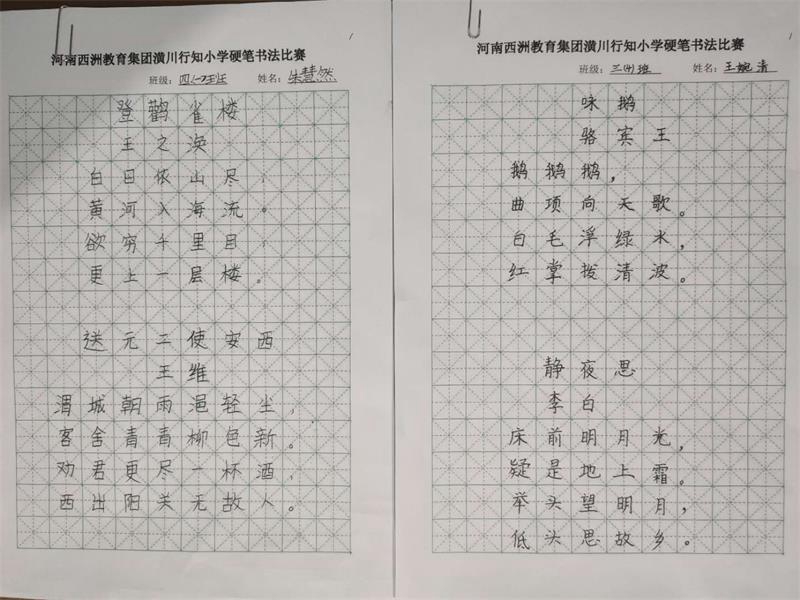 河南西洲教育集团潢川行知小学硬笔书法比赛
班级：四(一)班 姓名：朱慧然
登鹳雀楼
王之涣
白日依山尽，
黄河入海流。
欲穷千里目，
更上一层楼。
送元二使安西
王维
渭城朝雨浥轻尘，
客舍青青柳色新。
劝君更尽一杯酒，
西出阳关无故人。
河南西洲教育集团潢川行知小学硬笔书法比赛
班级：三(4)班 姓名：王婉清
咏鹅
骆宾王
鹅鹅鹅，
曲项向天歌。
白毛浮绿水，
红掌拨清波。
静夜思
李白
床前明月光，
疑是地上霜。
举头望明月，
低头思故乡。